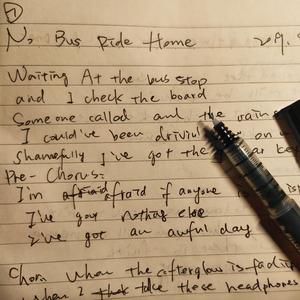 1
No Bus Ride Home 2019.
Waiting At the bus stop
and I check the board
Someone called and the
I could've been on
Shamefully I've got the
Pre-Chorus:
I'm afraid if anyone
I've got nothing else
I've got an awful day
When the afterglow is
When I take these headphones